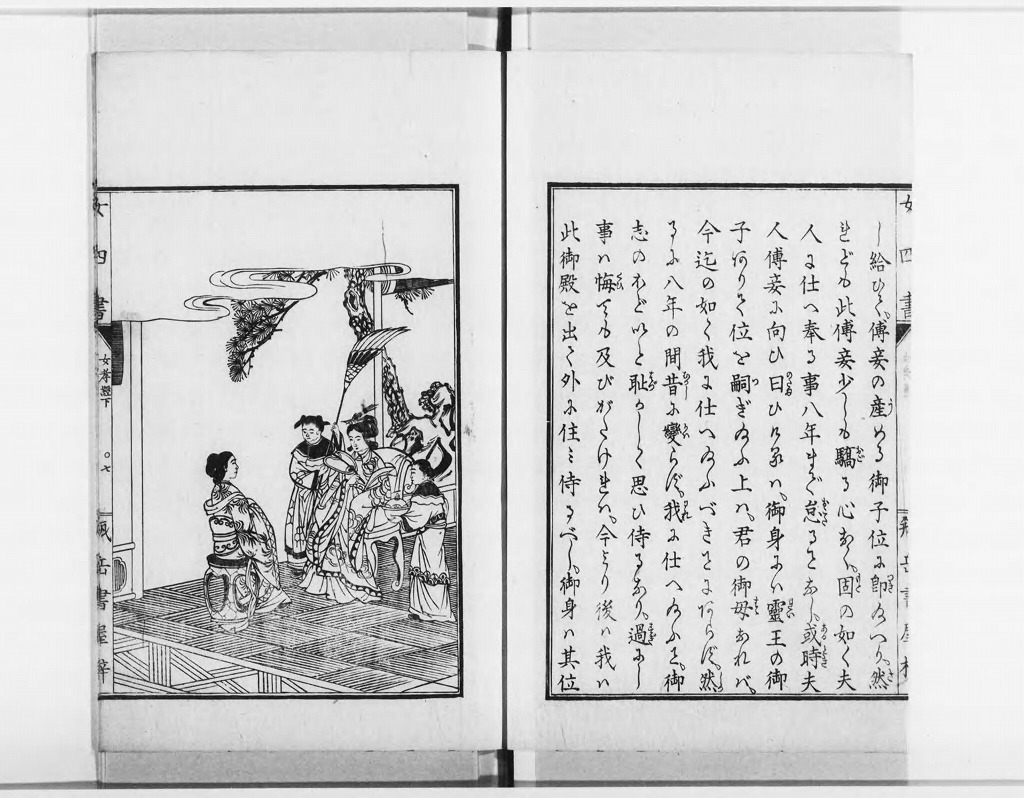 し給ひて、傅妾の産める御子位に即ゐへり、然
れども此傅妾少しも驕る心なく、固の如く夫
人に仕へ奉る事八年まで怠ることなし、或時夫
人傅妾に向ひ曰ひけるハ、御身ハ靈王の御
子ありて位を嗣ぎゐふ上ハ、君の御母なれバ、
今迄の如く我に仕へゐふべきことにあらず、然
るに八年の間昔に變らず、我に仕へゐふこと、御
志のほどいと耻かしく思ひ侍るなり、過にし
事ハ悔ても及びがたけれハ、今より後ハ我ハ
此御殿を出て外に住ミ侍るべし、御身ハ其位
女四書
女四書
女孝鑑下
〇七